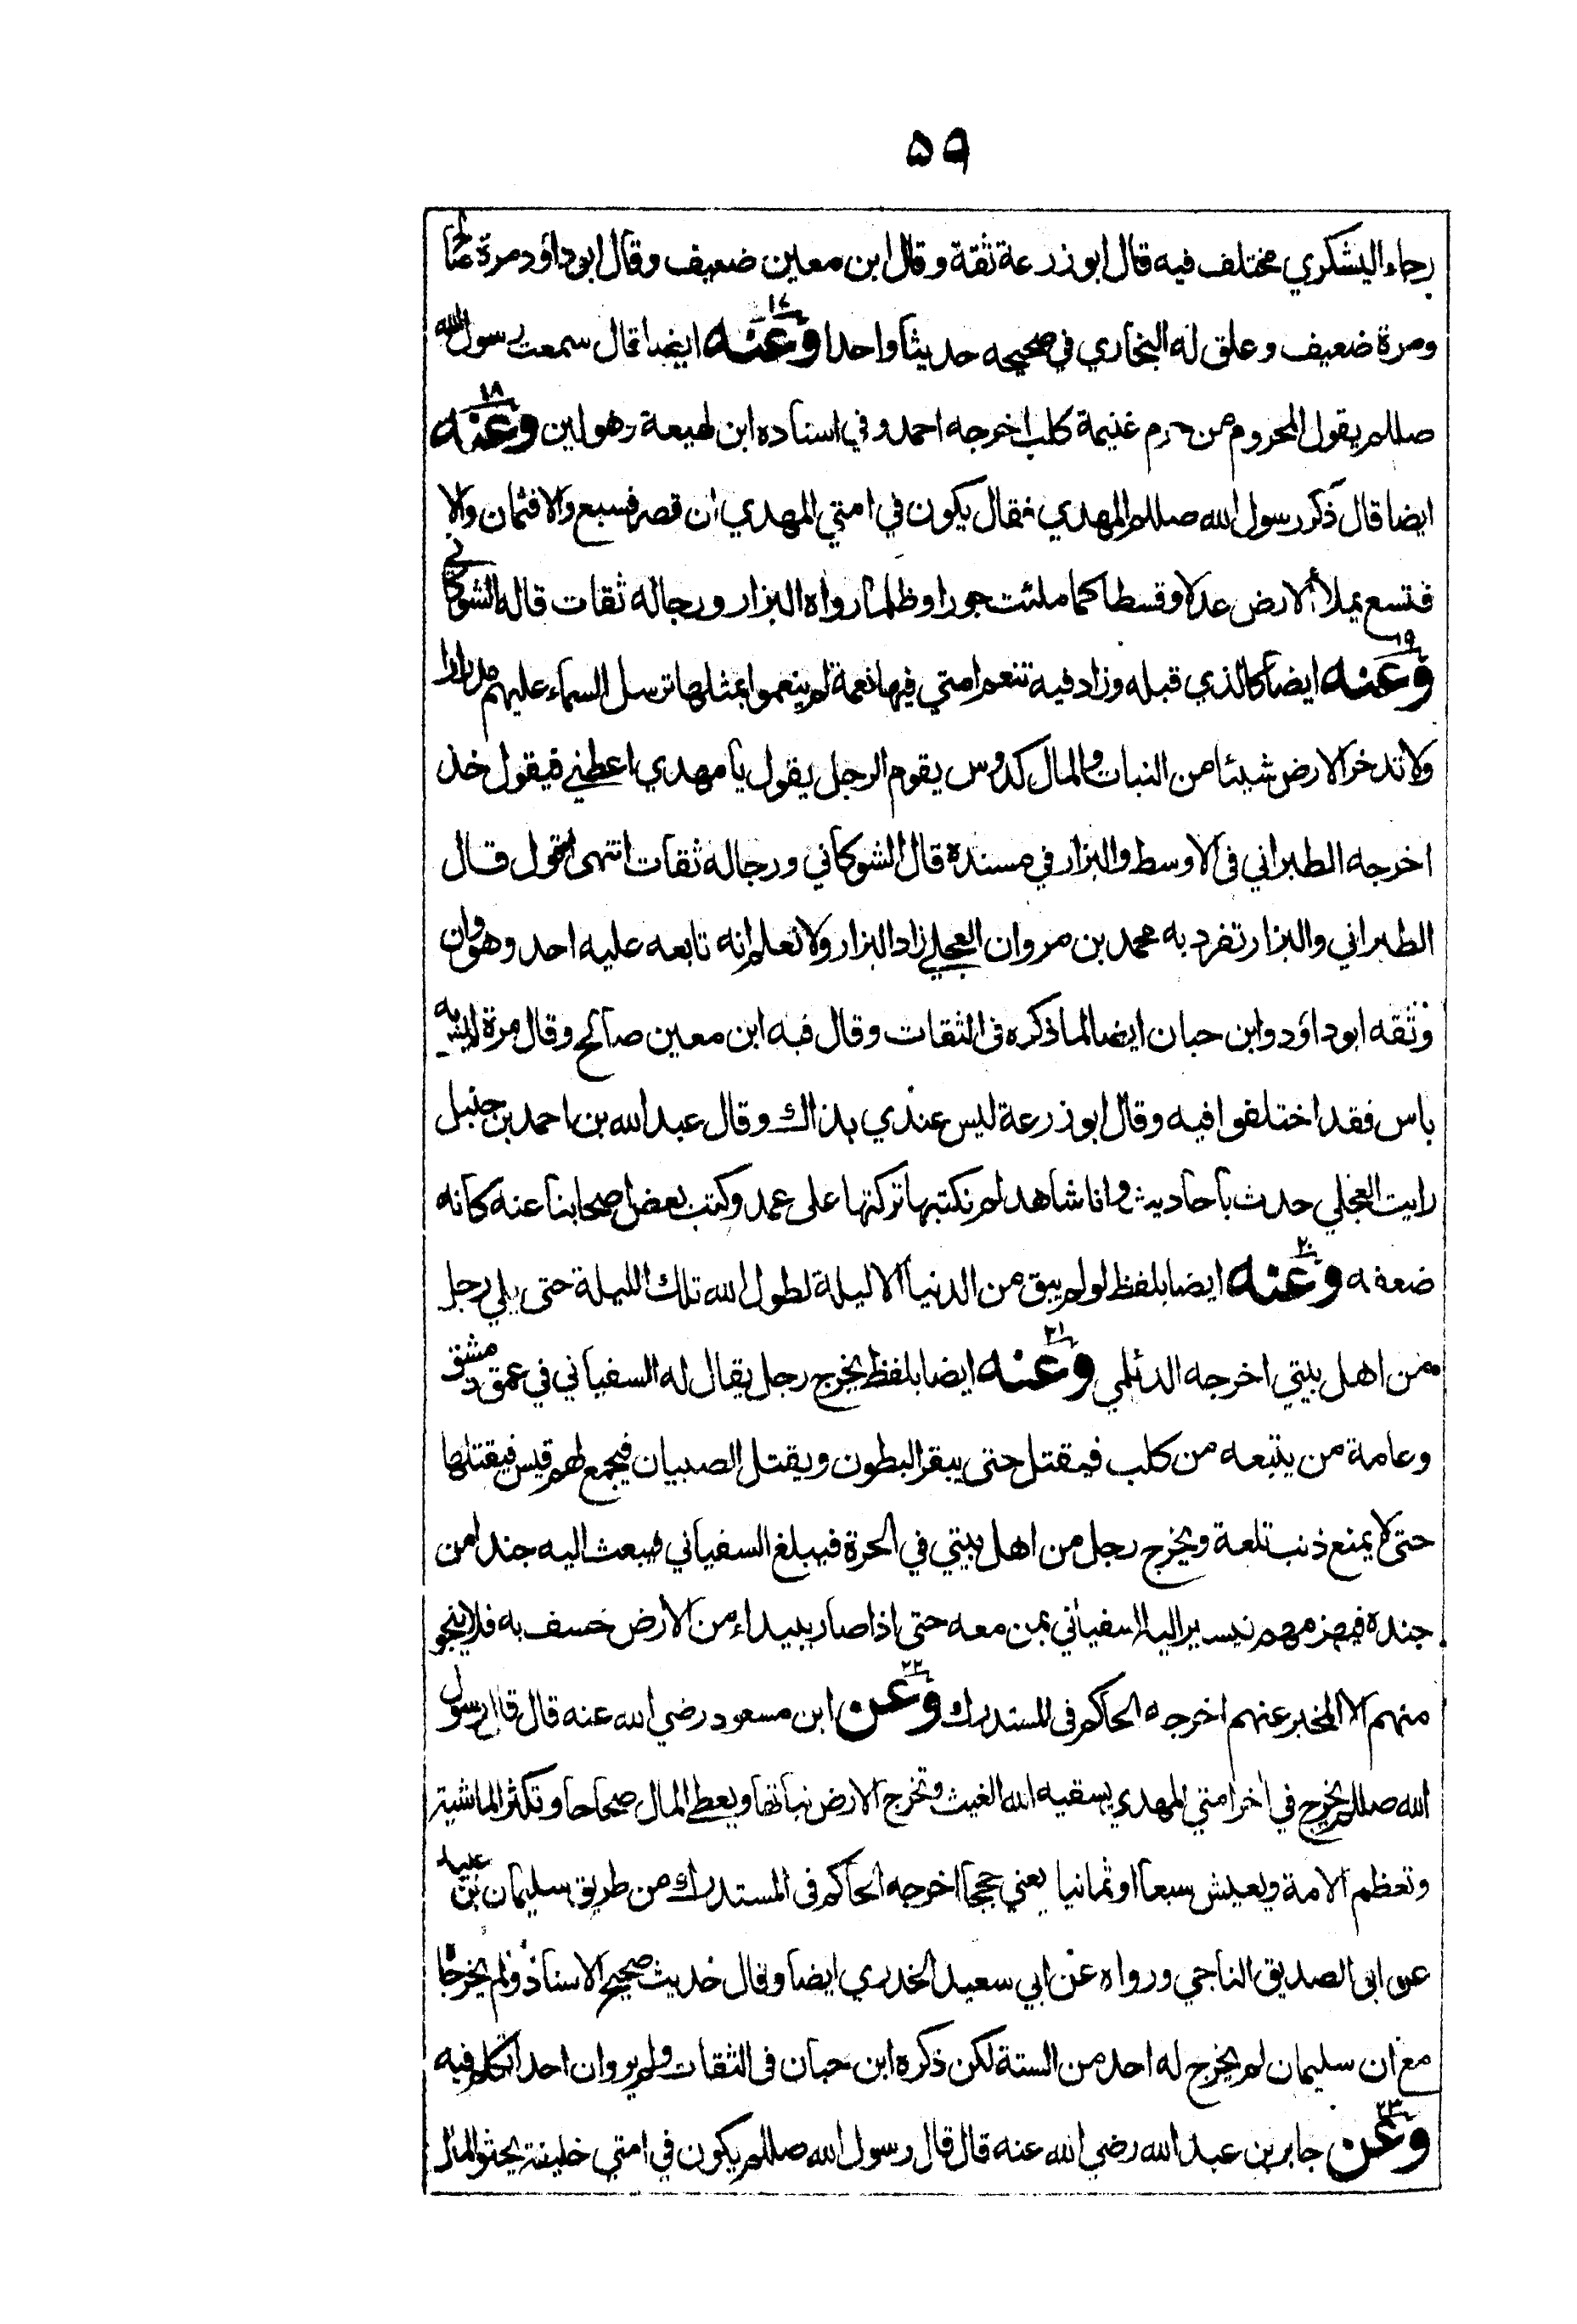 ۵۹
رجاء اليشكري مختلف فيه قال ابو زرعة ثقة وقال ابن معين ضعيف وقال ابوداؤد مرة صالح
ومرة ضعيف وعلق له البخاري في صحيحه حديثا واحدا وعنه ۱۷ ايضا قال سمعت رسول الله
صللم يقول المحروم من حرم غنيمة كلب اخرجه احمد وفي اسناده ابن لهيعة وهو لين وعنه ۱۸
ايضا قال ذكر رسول الله صللم المهدي فقال يكون في امتي المهدي ان قصر فسبع والا فثمان والا
فتسع يملأ الارض عدلا وقسطا كما ملئت جورا وظلما رواه البزار ورجاله ثقات قاله الشوكاني
وعنه ۱۹ ايضا كالذي قبله وزاد فيه تنعم امتي فيها نعمة لم ينعموا بمثلها ترسل السماء عليهم مدرارا
ولا تدخر الارض شيئا من النبات والمال كدوس يقوم الرجل يقول يا مهدي اعطني فيقول خذ
اخرجه الطبراني في الاوسط والبزار في مسنده قال الشوكاني ورجاله ثقات انتهى اقول قال
الطبراني والبزار تفرد به محمد بن مروان العجلي زاد البزار ولا نعلم انه تابعه عليه احد وهو وان
وثقه ابوداؤد وابن حبان ايضا لما ذكره في الثقات وقال فيه ابن معين صالح وقال مرة ليس به
باس فقد اختلفوا فيه وقال ابو زرعة ليس عندي بذاك وقال عبد الله بن احمد بن حنبل
رايت العجلي حدث باحاديث وانا شاهد لم نكتبها تركتها على عمد وكتب بعض اصحابنا عنه كانه
ضعفه وعنه ۲۰ ايضا بلفظ لو لم يبق من الدنيا الا ليلة لطول الله تلك الليلة حتى يلي رجل
من اهل بيتي اخرجه الدئلمي وعنه ۲۱ ايضا بلفظ يخرج رجل يقال له السفياني في عمق دمشق
وعامة من يتبعه من كلب فيقتل حتى يبقر البطون ويقتل الصبيان فيجمع لهم قيس فيقتلها
حتى لا يمنع ذنب تلعة ويخرج رجل من اهل بيتي في الحرة فيبلغ السفياني فيبعث اليه جندا من
جنده فيهزمهم فيسير اليه السفياني بمن معه حتى اذا صار ببيداء من الارض خسف به فلا ينجو
منهم الا المخبر عنهم اخرجه الحاكم في المستدرك وعن ۲۲ ابن مسعود رضي الله عنه قال قال رسول
الله صللم يخرج في اخر امتي المهدي يسقيه الله الغيث وتخرج الارض نباتها ويعطي المال صحاحا وتكثر الماشية
وتعظم الامة ويعيش سبعا او ثمانيا يعني حججا اخرجه الحاكم في المستدرك من طريق سليمان بن عبيد
عن ابي الصديق الناجي ورواه عن ابي سعيد الخدري ايضا وقال حديث صحيح الاسناد ولم يخرجاه
مع ان سليمان لم يخرج له احد من الستة لكن ذكره ابن حبان في الثقات ولم يرو ان احدا تكلم فيه
وعن ۲۳ جابر بن عبد الله رضي الله عنه قال قال رسول الله صللم يكون في امتي خليفة يحثو المال